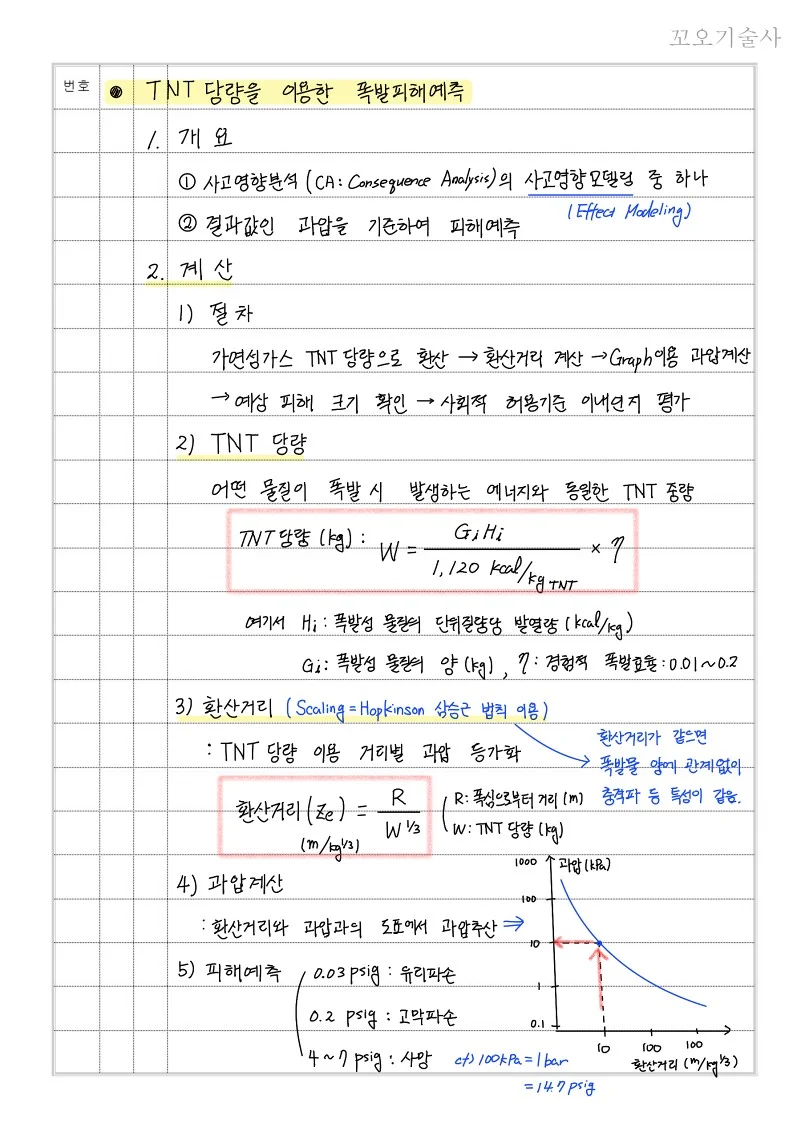 꼬오기술사
번호
● TNT 당량을 이용한 폭발피해예측
1. 개요
① 사고영향분석 (CA: Consequence Analysis)의 사고영향모델링 중 하나
(Effect Modeling)
② 결과값인 과압을 기준하여 피해예측
2. 계산
1) 절차
가연성가스 TNT 당량으로 환산 → 환산거리 계산 → Graph이용 과압계산
→ 예상 피해 크기 확인 → 사회적 허용기준 이내인지 평가
2) TNT 당량
어떤 물질이 폭발 시 발생하는 에너지와 동일한 TNT 중량
TNT 당량 (kg) : W = GiHi / 1,120 kcal/kg TNT × η
여기서 Hi : 폭발성 물질의 단위질량당 발열량 (kcal/kg)
Gi : 폭발성 물질의 양 (kg), η : 경험적 폭발효율 : 0.01~0.2
3) 환산거리 (Scaling = Hopkinson 삼승근 법칙 이용)
환산거리가 같으면
폭발물 양에 관계없이
충격파 등 특성이 같음.
: TNT 당량 이용 거리별 과압 등가화
환산거리 (Ze) = R / W^1/3
(m/kg^1/3)
R : 폭심으로부터 거리 (m)
W : TNT 당량 (kg)
4) 과압계산
: 환산거리와 과압과의 도표에서 과압추산 ⇒
과압 (kPa)
1000
100
10
1
0.1
10 100 100
환산거리 (m/kg^1/3)
5) 피해예측
0.03 psig : 유리파손
0.2 psig : 고막파손
4~7 psig : 사망
cf) 100kPa = 1bar
= 14.7 psig